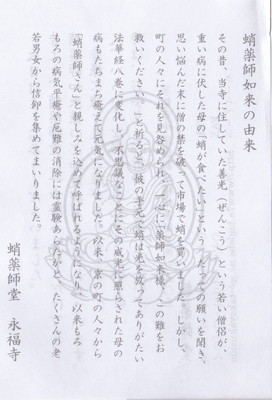 蛸薬師如来の由来
その昔、当寺に住していた善光（ぜんこう）という若い僧侶が、
重い病に伏した母の「蛸が食べたい」という、たっての願いを聞き、
思い悩んだ末に僧の禁を破って市場で蛸を買いました。しかし、
町の人々にそれを見咎められ、一心に「薬師如来様、この難をお
救いください。」と祈ると、彼の手元の蛸は光を放ってありがたい
法華経八巻に変化し、不思議なことにその威光に照らされた母の
病もたちまち癒えて元気になりました。以来、京の町の人々から
「蛸薬師さん」と親しみを込めて呼ばれるようになり、以来もろ
もろの病気平癒や厄難の消除には霊験あらたかと、たくさんの老
若男女から信仰を集めてまいりました。
蛸薬師堂　永福寺